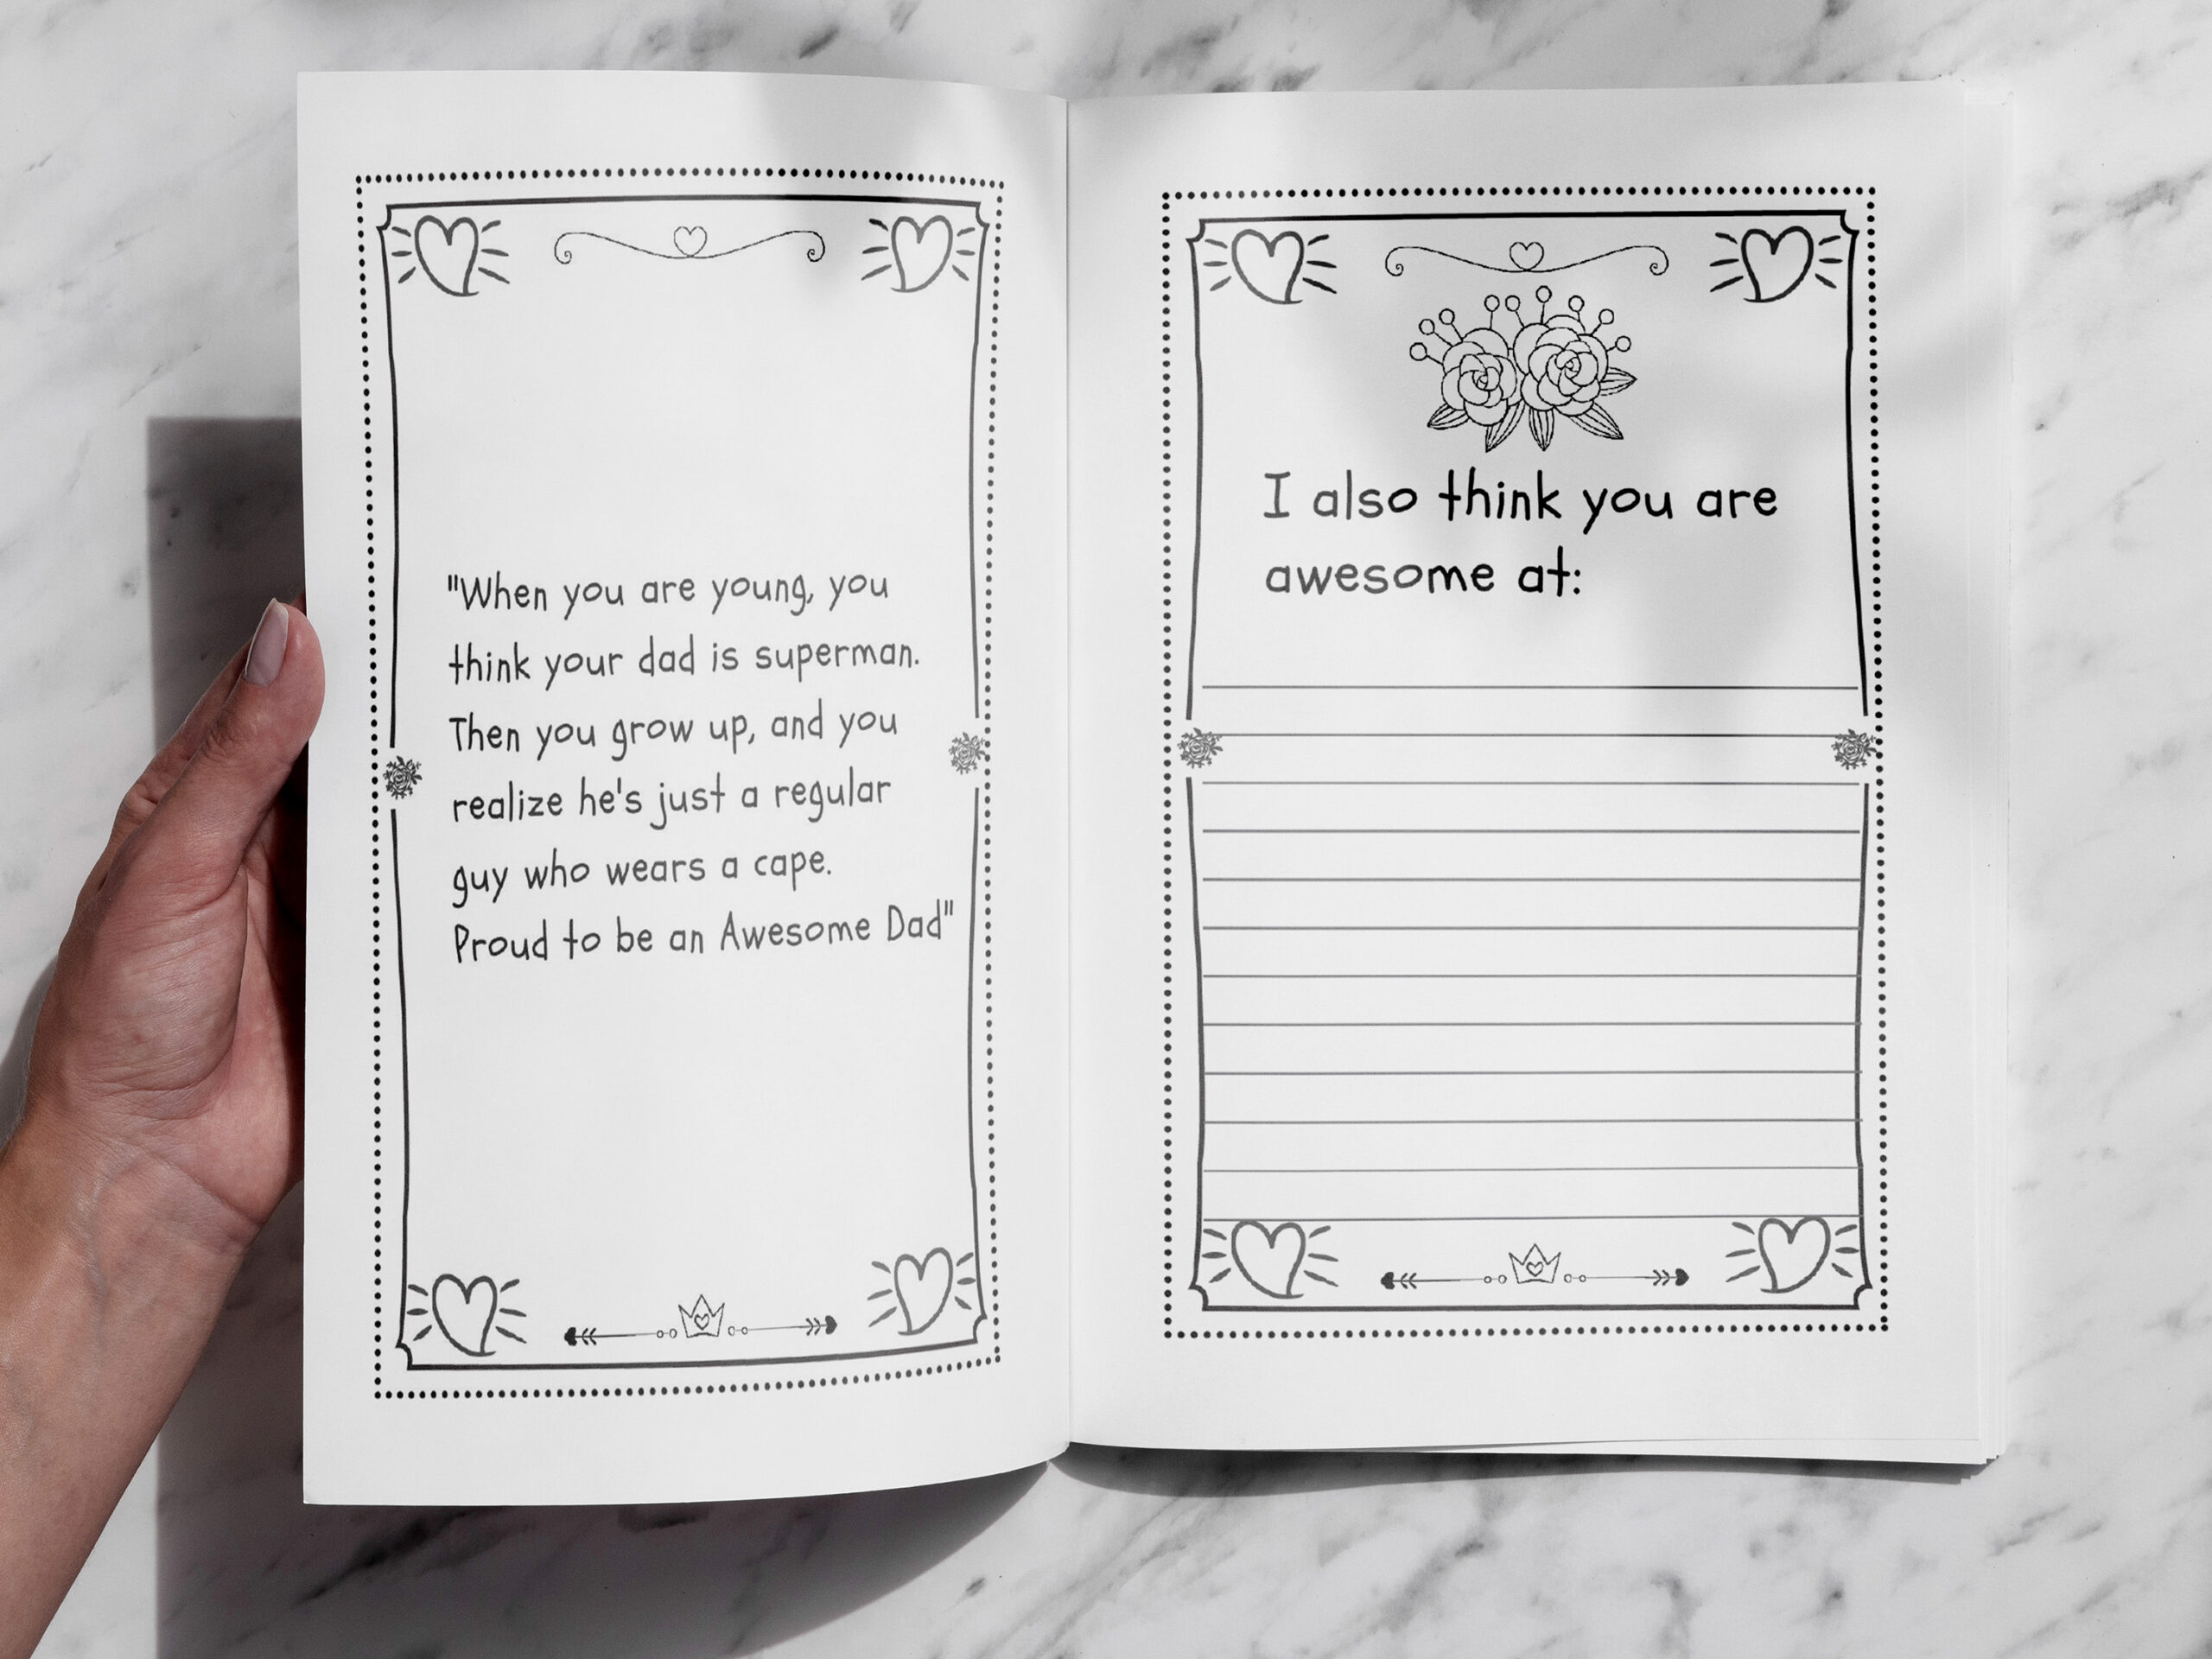 "When you are young, you
think your dad is superman.
Then you grow up, and you
realize he's just a regular
guy who wears a cape.
Proud to be an Awesome Dad"
I also think you are
awesome at: